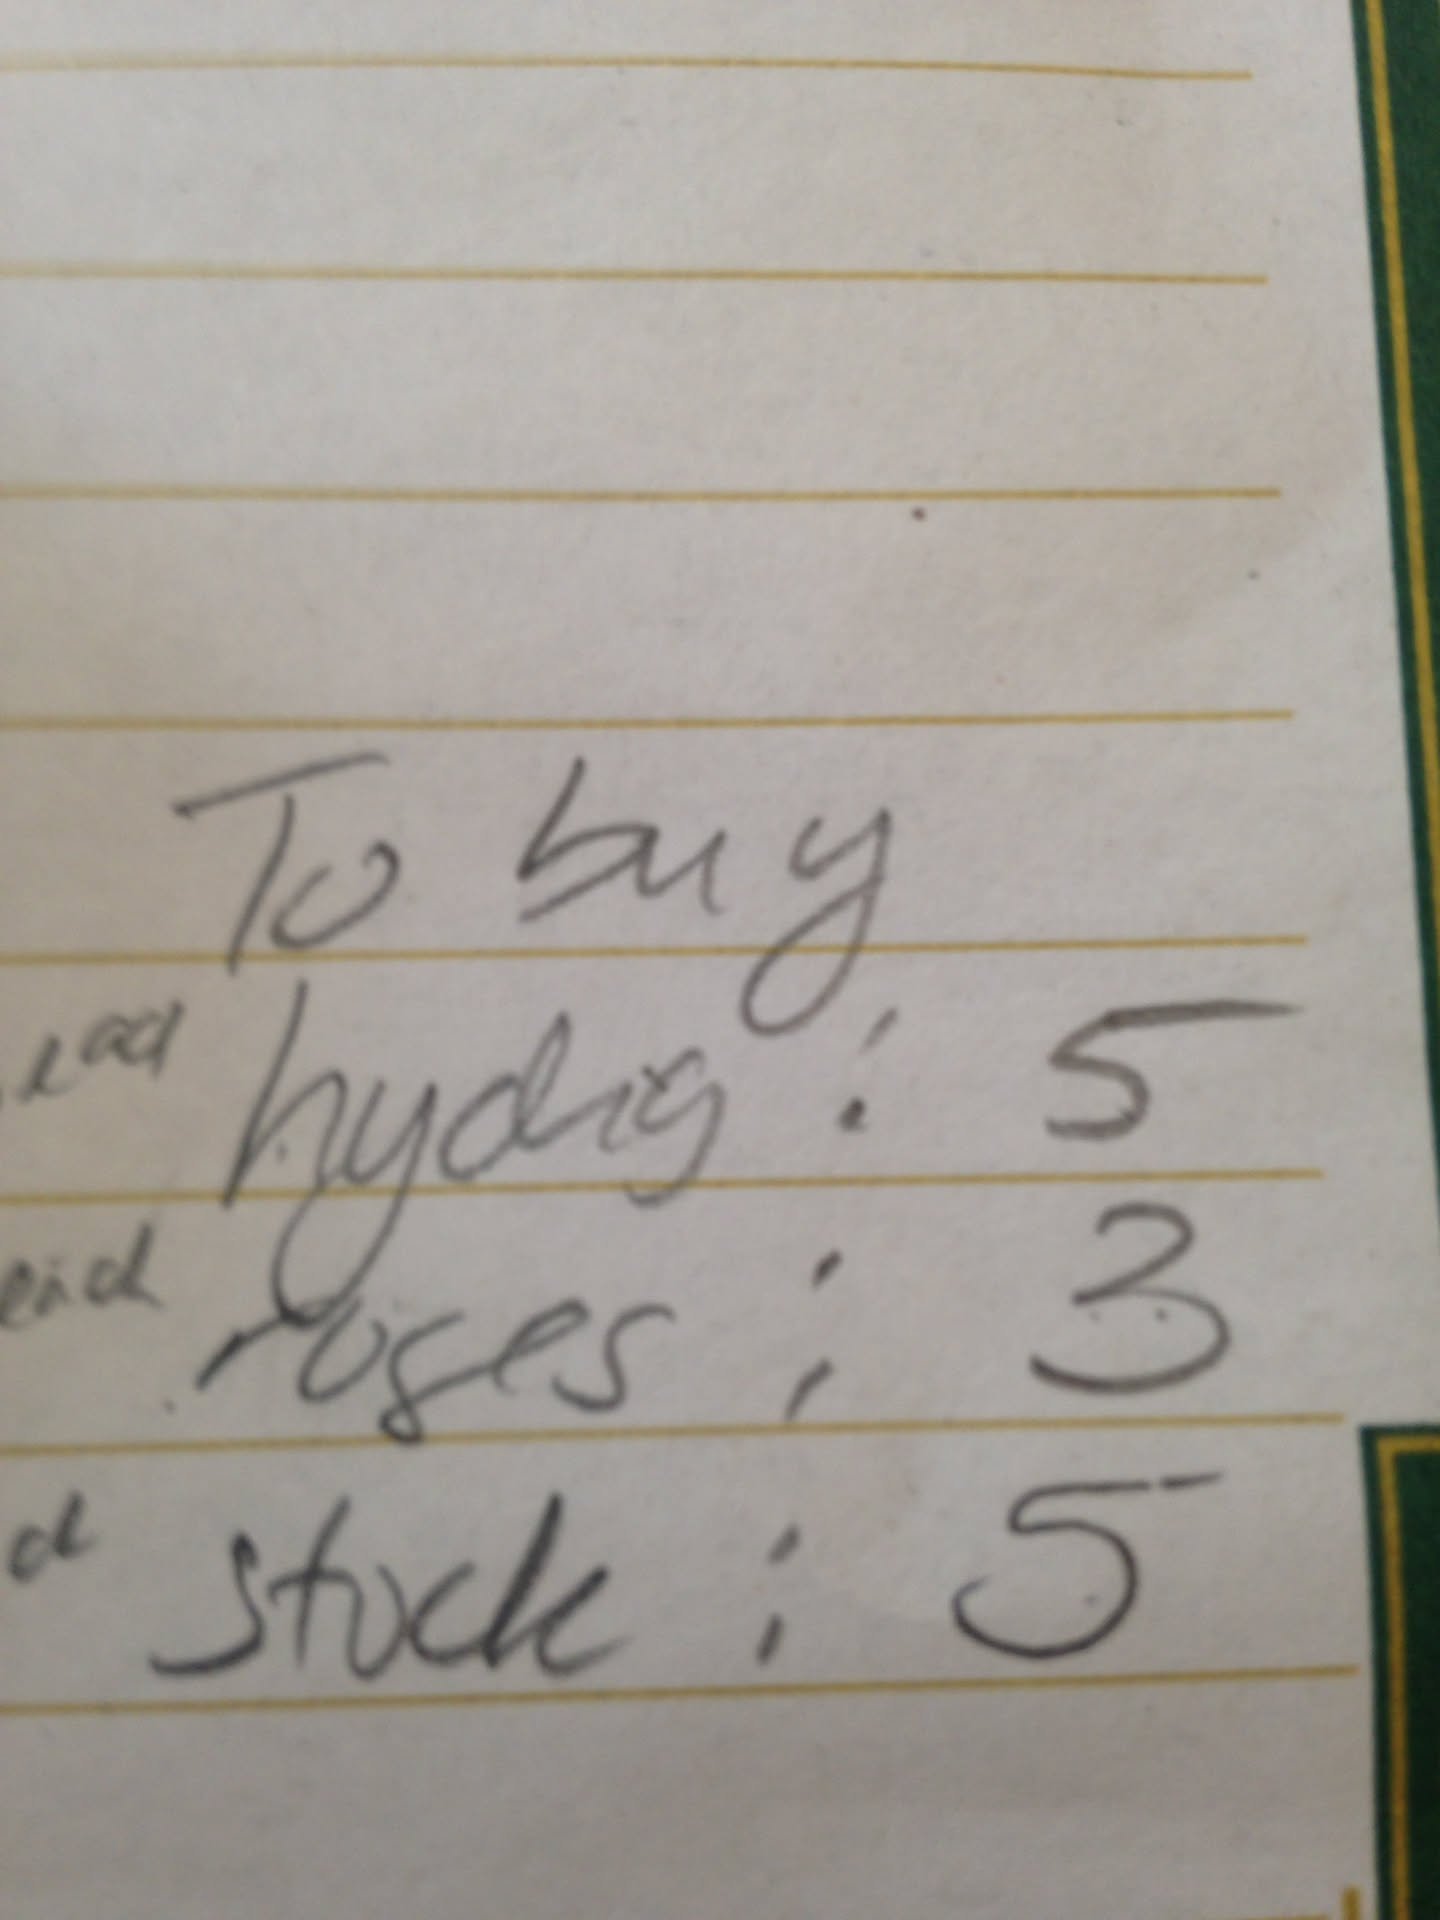 To buy
each hydrg : 5
each roses : 3
stock : 5